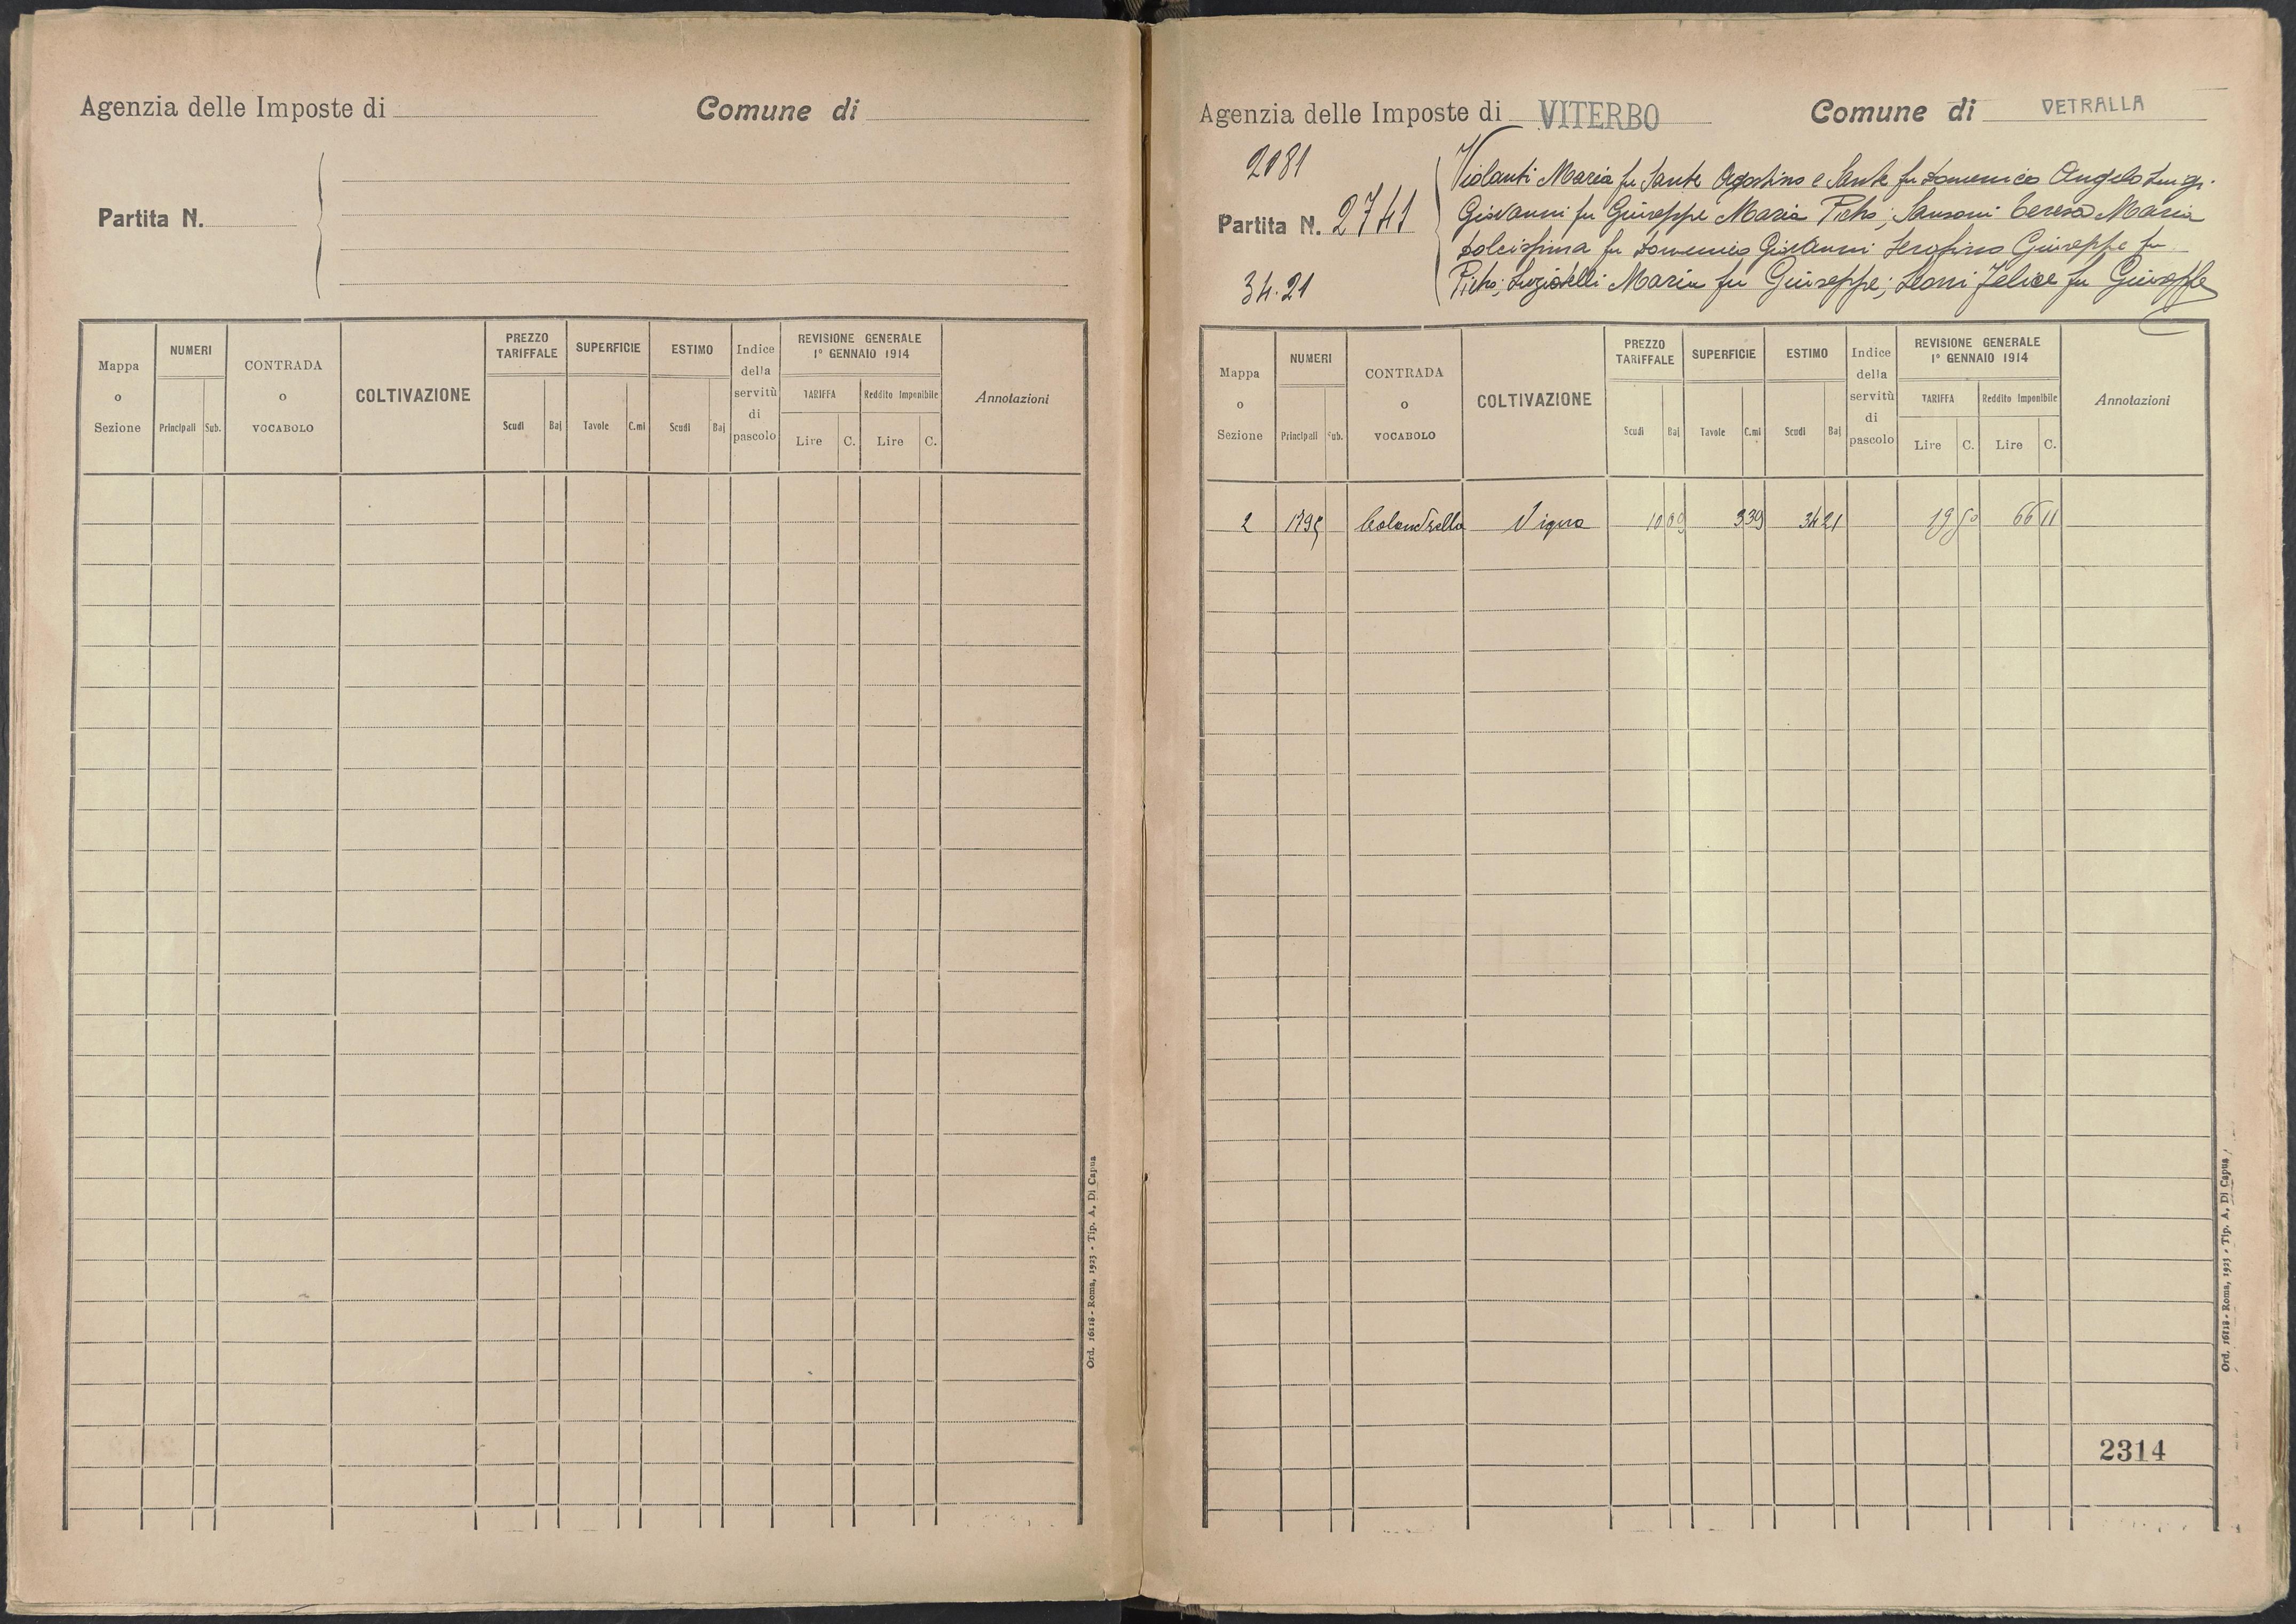 Agenzia delle Imposte di
Comune di
Partita N.
Mappa o Sezione
NUMERI
Principali
Sub.
CONTRADA o VOCABOLO
COLTIVAZIONE
PREZZO TARIFFALE
Scudi
Baj
SUPERFICIE
Tavole
C.mi
ESTIMO
Scudi
Baj
Indice della servitù di pascolo
REVISIONE GENERALE
1° GENNAIO 1914
TARIFFA
Lire
C.
Reddito Imponibile
Lire
C.
Annotazioni
Ord. 16118 - Roma, 1923 - Tip. A. Di Capua
Agenzia delle Imposte di VITERBO
Comune di VETRALLA
2081
Partita N. 2741
34.21
Violanti Maria fu Sante Agostino e Sante fu Domenico Angelo Luigi
Giovanni fu Giuseppe Maria Pietro; Sansoni Teresa Maria
Dolcissima fu Domenico Giovanni Serafino Giuseppe fu
Pietro; Maria fu Giuseppe; Leoni Felice fu Giuseppe
Mappa o Sezione
NUMERI
Principali
Sub.
CONTRADA o VOCABOLO
COLTIVAZIONE
PREZZO TARIFFALE
Scudi
Baj
SUPERFICIE
Tavole
C.mi
ESTIMO
Scudi
Baj
Indice della servitù di pascolo
REVISIONE GENERALE
1° GENNAIO 1914
TARIFFA
Lire
C.
Reddito Imponibile
Lire
C.
Annotazioni
2 1795 Vigna 10 09 3 39 34 21 19 50 66 11
2314
Ord. 16118 - Roma, 1923 - Tip. A. Di Capua